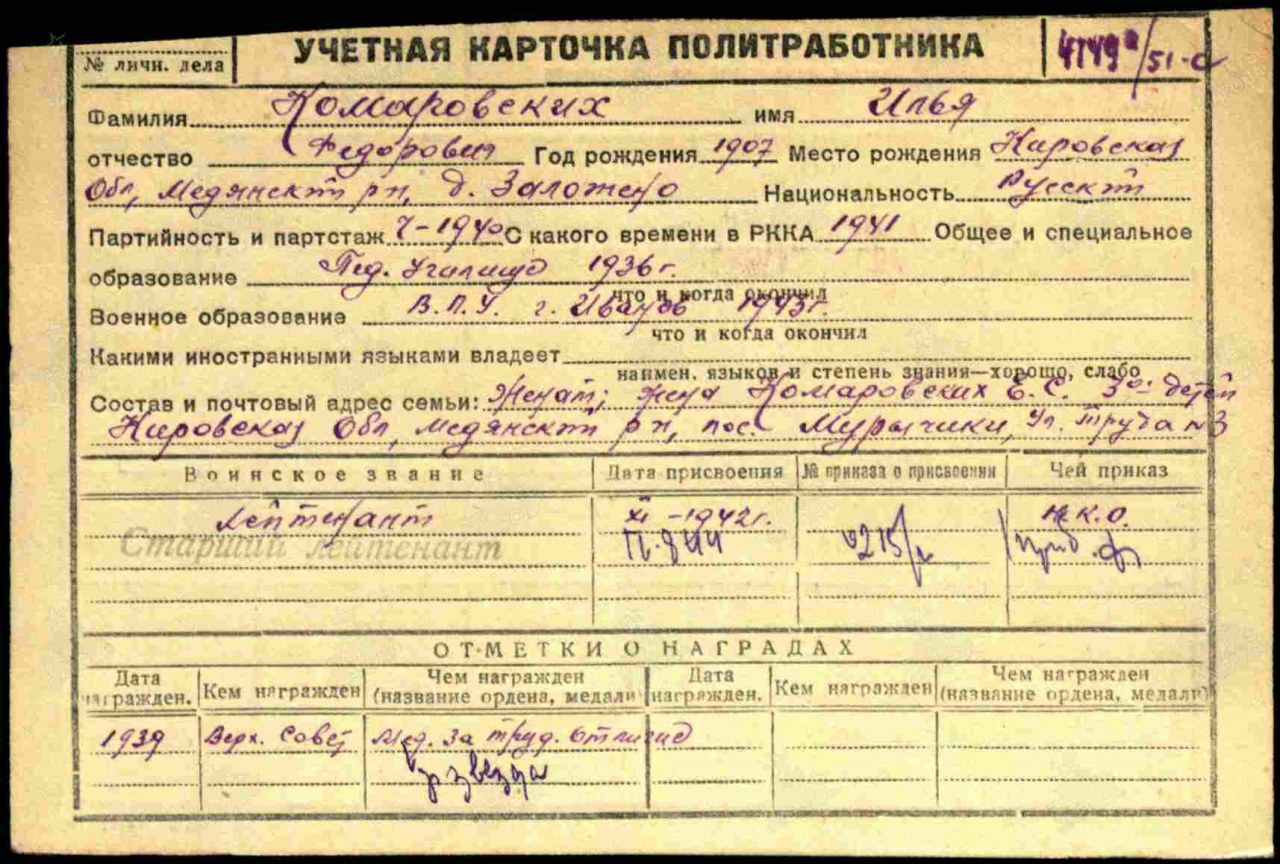 УЧЕТНАЯ КАРТОЧКА ПОЛИТРАБОТНИКА
№ личн. дела
Фамилия Комаровских имя Илья
отчество Федорович Год рождения 1907 Место рождения Кировская
Обл, Медянский рн, д. Заложено Национальность Русский
Партийность и партстаж 7-1940 С какого времени в РККА 1941 Общее и специальное
образование Пед. Училище 1936г.
что и когда окончил
Военное образование В.П.У. г. Иваново 1943г.
что и когда окончил
Какими иностранными языками владеет
наимен. языков и степень знания—хорошо, слабо
Состав и почтовый адрес семьи: Женат; жена Комаровских Е.С. 3ое детей
Кировская Обл, Медянский рн, пос. Мурыгики, Ул. Труда №3
Воинское звание Дата присвоения № приказа о присвоении Чей приказ
Лейтенант XI-1942г. Н.К.О.
Старший лейтенант 0215/
ОТМЕТКИ О НАГРАДАХ
Дата награжден. Кем награжден Чем награжден (название ордена, медали) Дата награжден. Кем награжден Чем награжден (название ордена, медали)
1939 Верх. Совет Мед. За труд. отличие
Кр звезда